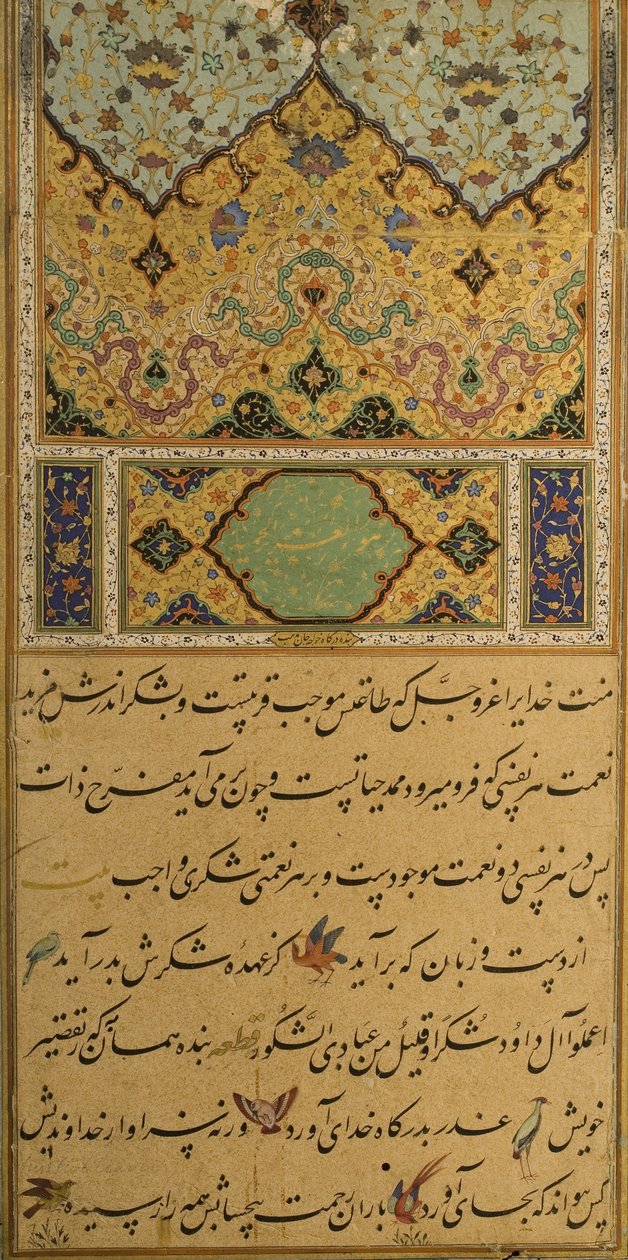 هو العزیز
منت خدایرا عز و جلّ که طاعتش موجب قربتست و بشکر اندرش مزید
نعمت هر نفسی که فرو میرود ممد حیاتست و چون بر می آید مفرّح ذات
پس در هر نفسی دو نعمت موجودست و بر هر نعمتی شکری واجب بیت
از دست و زبان که برآید کز عهدهٔ شکرش بدر آید
اعملُوا آل داوُد شُکرًا و قلیلٌ من عبادی الشکُور قطعه بنده همان به که ز تقصیر
خویش عذر بدرگاه خدای آورد ورنه سزاوار خداوندیش
کس نتواند که بجای آورد باران رحمت بیحسابش همه را رسیده